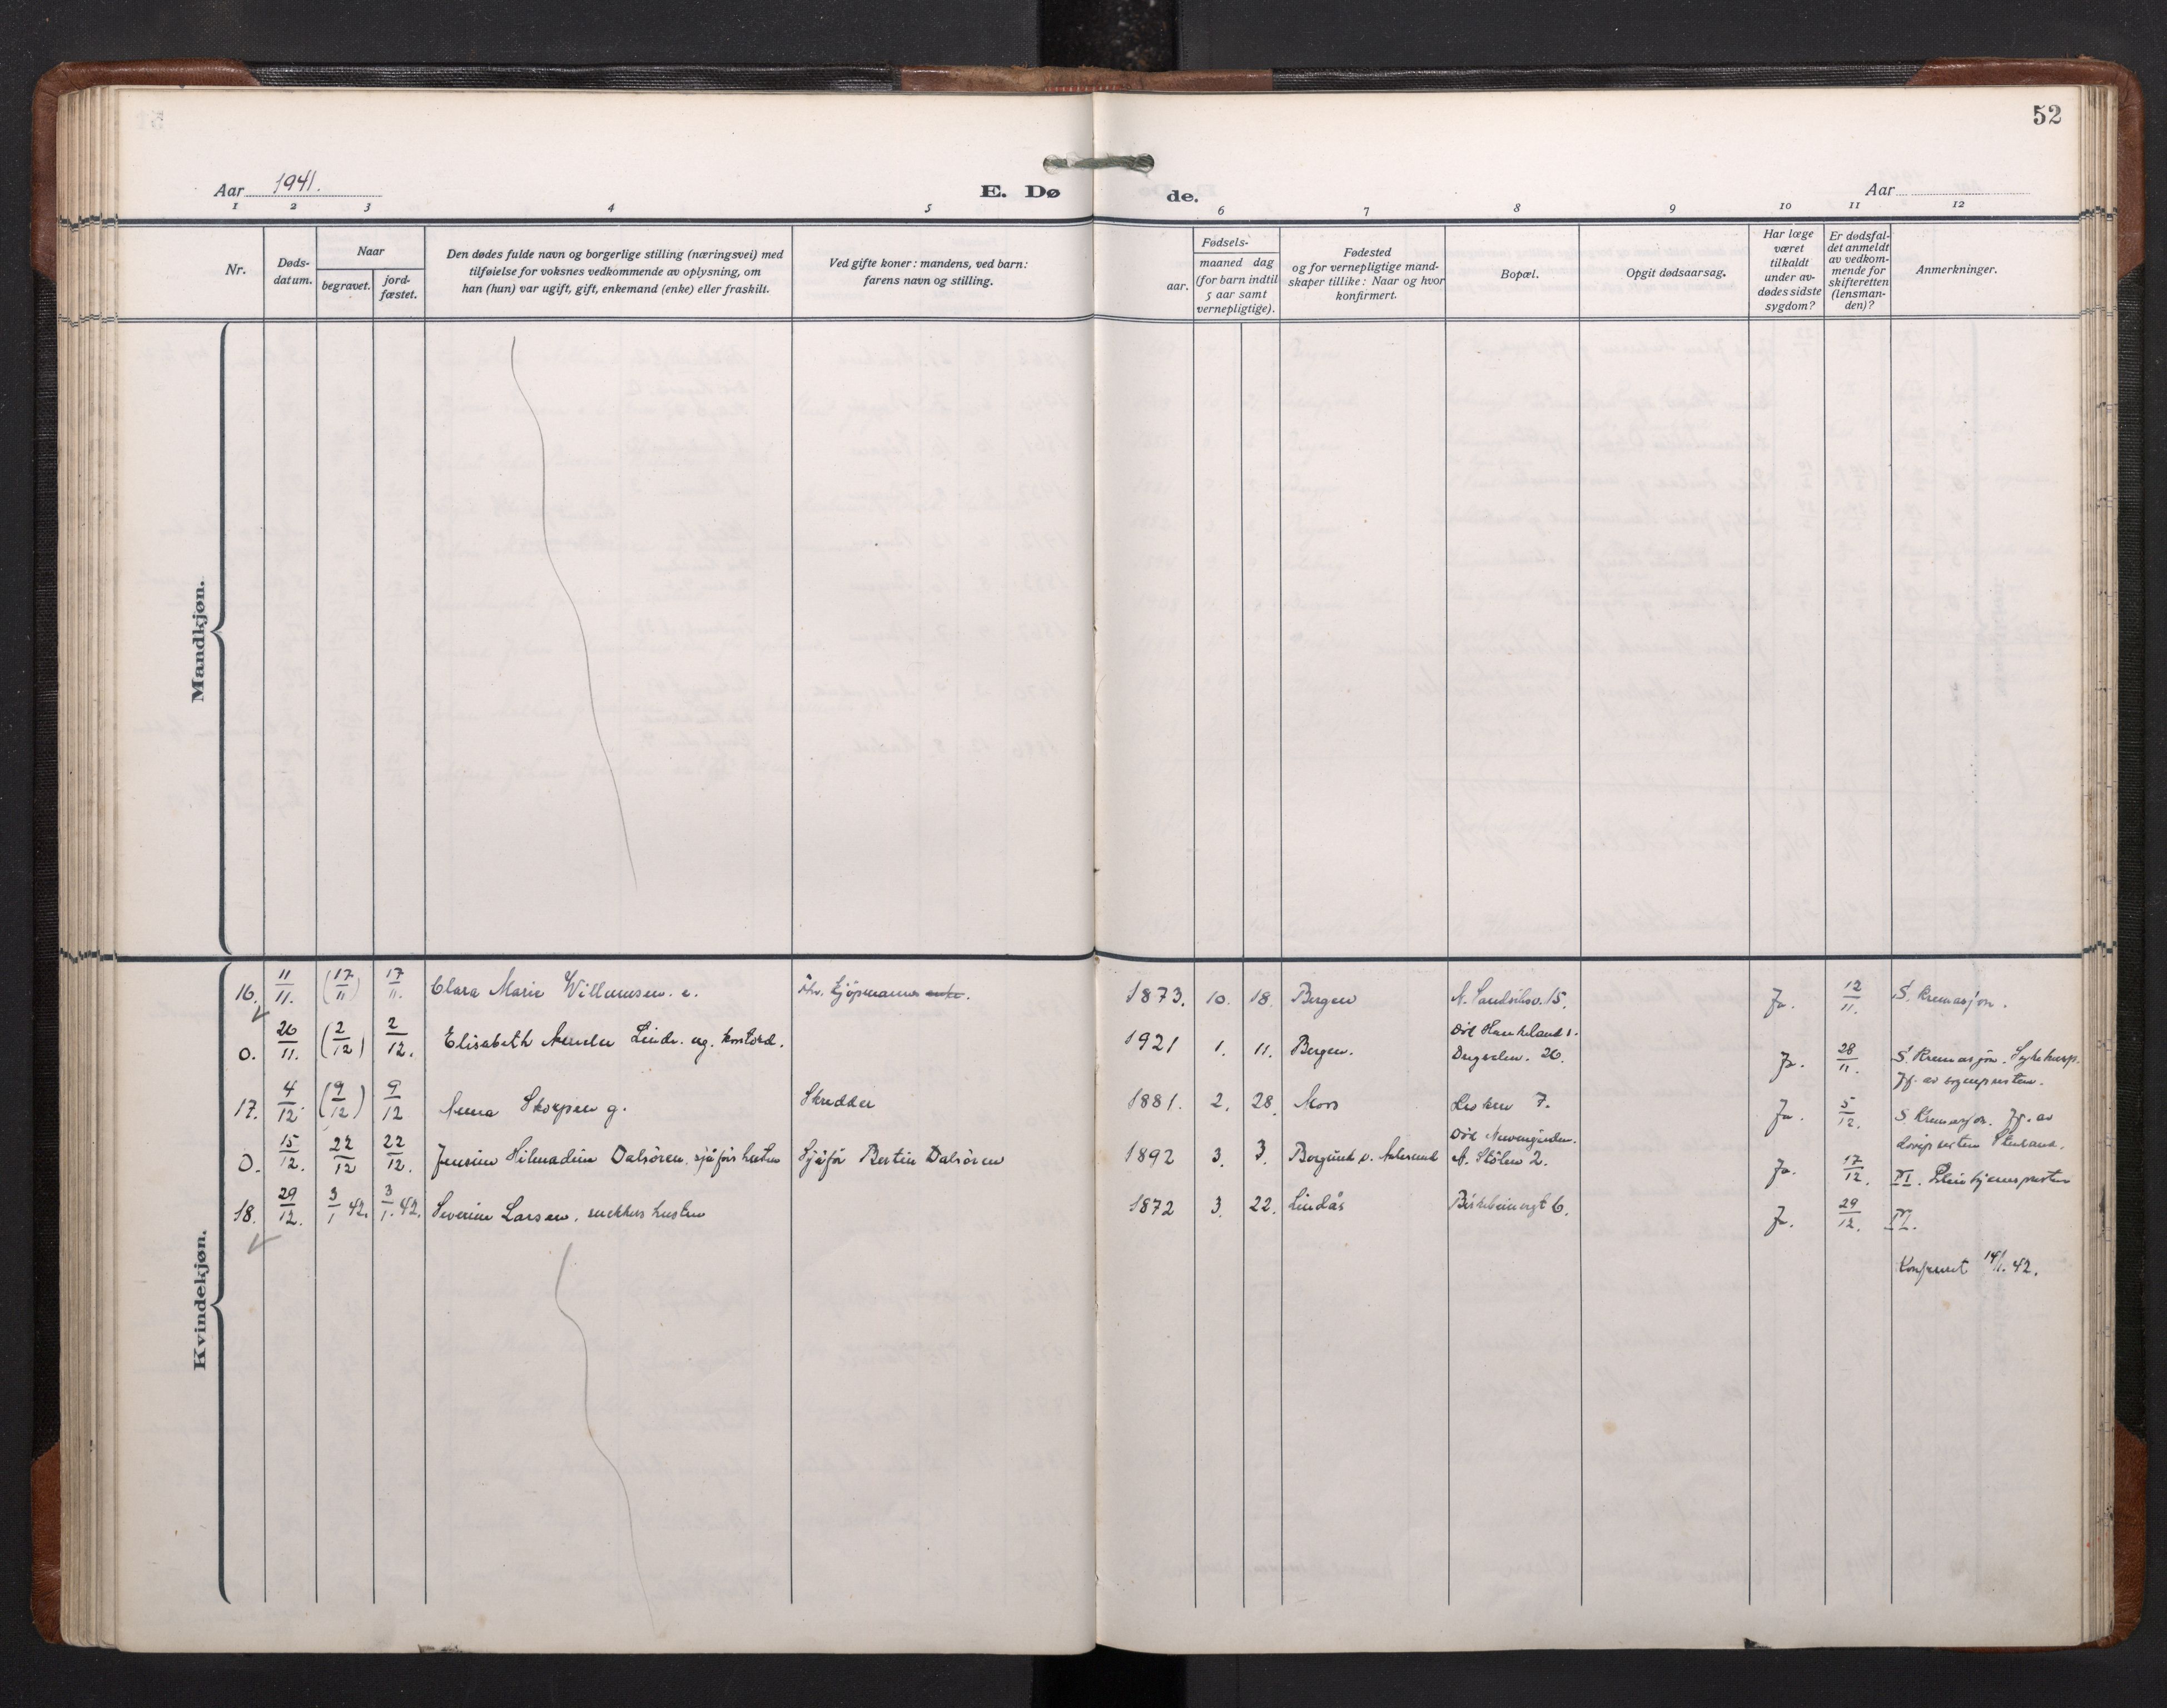 52
Aar 1941.
E. Døde.
Aar
1 2 3 4 5 6 7 8 9 10 11 12
Nr.
Døds-
datum.
Naar
begravet.
jord-
fæstet.
Den dødes fulde navn og borgerlige stilling (næringsvei) med
tilføielse for voksnes vedkommende av oplysning, om
han (hun) var ugift, gift, enkemand (enke) eller fraskilt.
Ved gifte koner: mandens, ved barn:
farens navn og stilling.
Fødsels-
aar.
maaned dag
(for barn indtil
5 aar samt
vernepligtige).
Fødested
og for vernepligtige mand-
skaper tillike: Naar og hvor
konfirmert.
Bopæl.
Opgit dødsaarsag.
Har læge
været
tilkaldt
under av-
dødes sidste
sygdom?
Er dødsfal-
det anmeldt
av vedkom-
mende for
skifteretten
(lensman-
den)?
Anmerkninger.
Mandkjøn.
Kvindekjøn.
16. 11/11. (17/11) 17/11. Clara Marie Willumsen. e. kjøpmanns enke. 1873. 10. 18. Bergen 15. Ja. 12/11. S. Kremasjon.
0. 26/11. (2/12) 2/12. Elisabeth Linde. ug. 1921 1. 11. Bergen. Død Haukeland s.
26. Ja. 28/11. S. Kremasjon. Sykehusp.
Jf. av sognepresten.
17. 4/12. (9/12) 9/12 Anna Skorpen g. Skredder 1881. 2. 28. Mors 7. Ja. 5/12. S. Kremasjon. Jf. av
0. 15/12. 22/12 22/12. Jensine Hilmadine Dalsören, sjåførs hustru Sjåfør Bertin Dalsören 1892 3. 3. Borgund v. Aalesund Død
N. Stölen 2. Ja. 17/12. M.
18. 29/12. 3/1 42. 3/1. 42. Severine Larsen, snekkers hustru 1872 3. 22. Lindås Birkebeinergt 6. Ja. 29/12. M.
Konferert 14/1. 42.